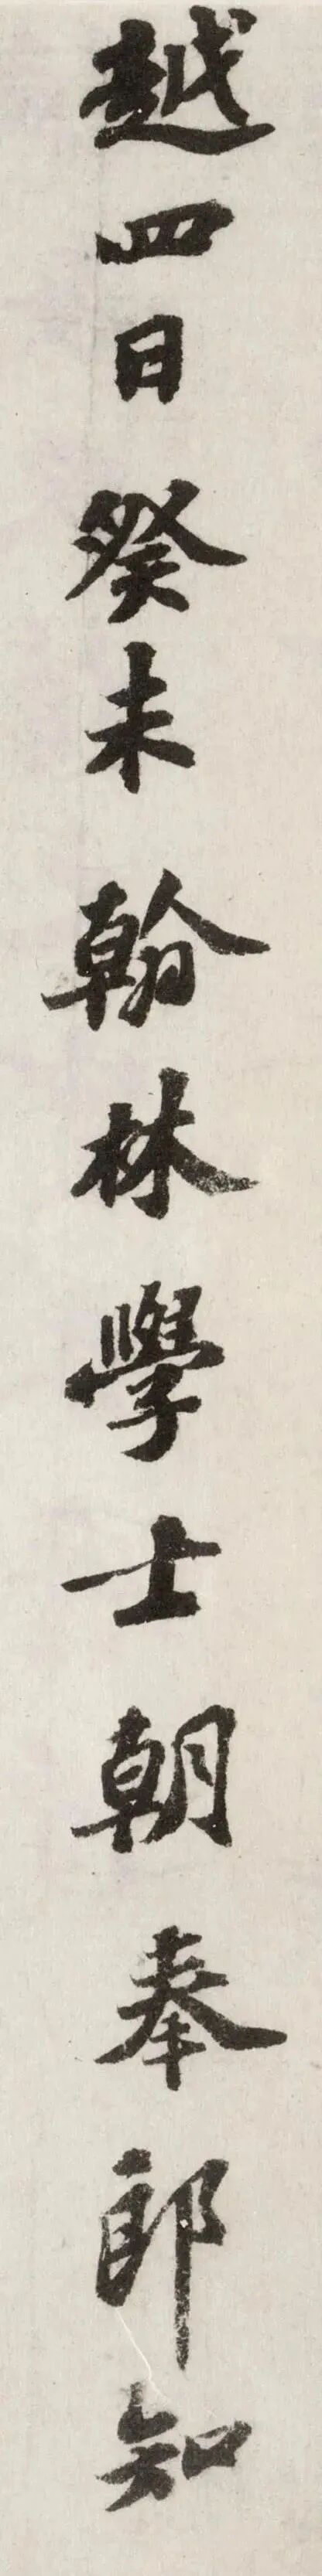 越四日癸未翰林學士朝奉郎知